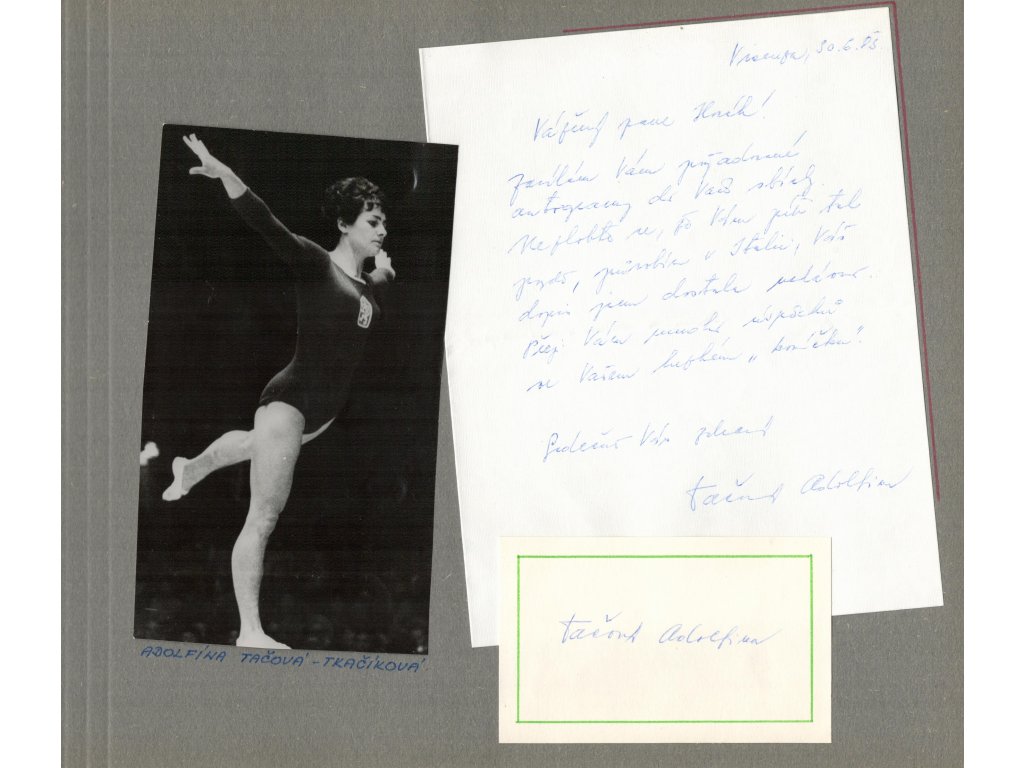 Vicenza, 30.6.85
Vážený pane Horák!
Zasílám Vám požadované
autogramy do Vaší sbírky.
Nezlobte se, že Vám píši tak
pozdě, působím v Itálii, Váš
dopis jsem dostala nedávno.
Přeji Vám mnoho úspěchů
ve Vašem hezkém „koníčku“.
Srdečně Vás zdraví
Tačová Adolfina
Tačová Adolfina
ADOLFÍNA TAČOVÁ-TKAČÍKOVÁ